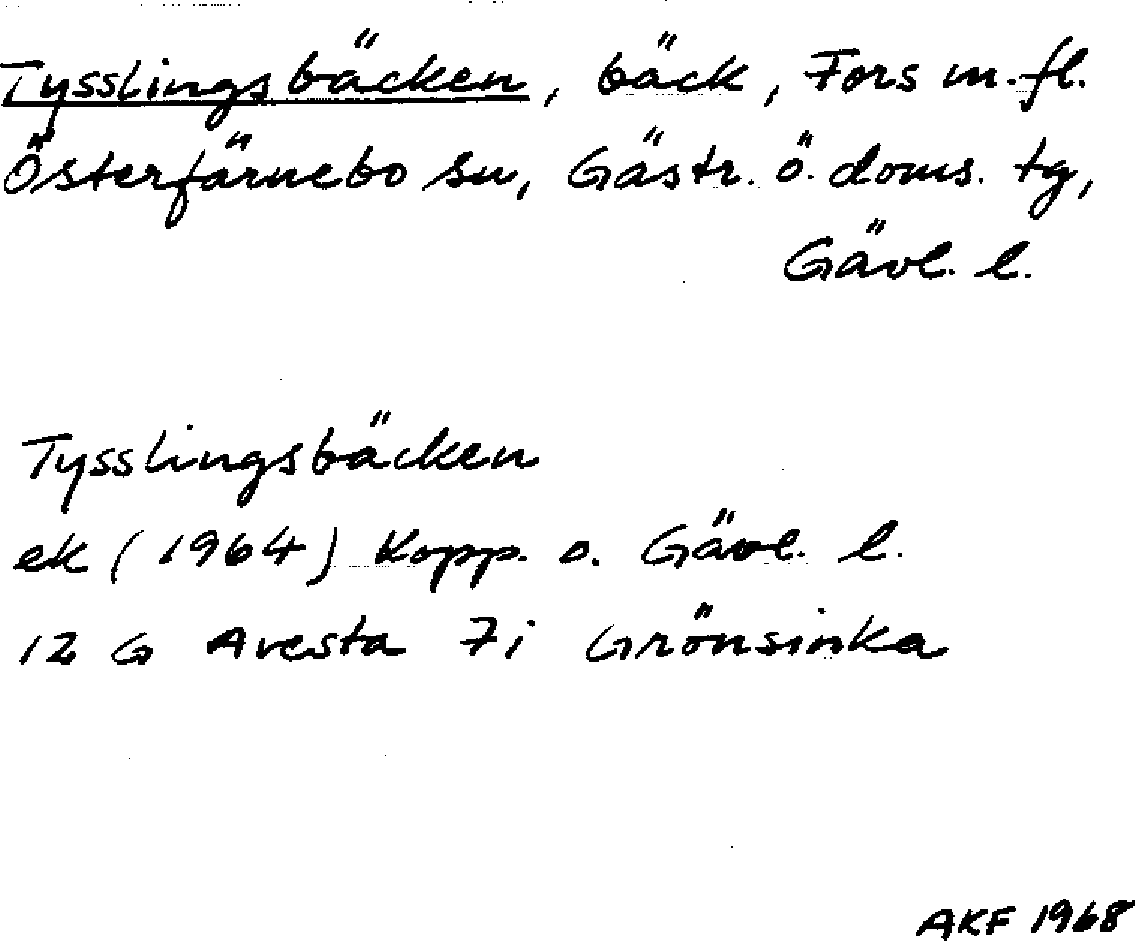 Tysslingsbäcken, bäck, Fors m.fl.
Österfärnebo sn, Gästr. ö. doms. tg,
Gävl. l.
Tysslingsbäcken
ek (1964) Kopp. o. Gävl. l.
12 G Avesta 7i Grönsinka
AKF 1968